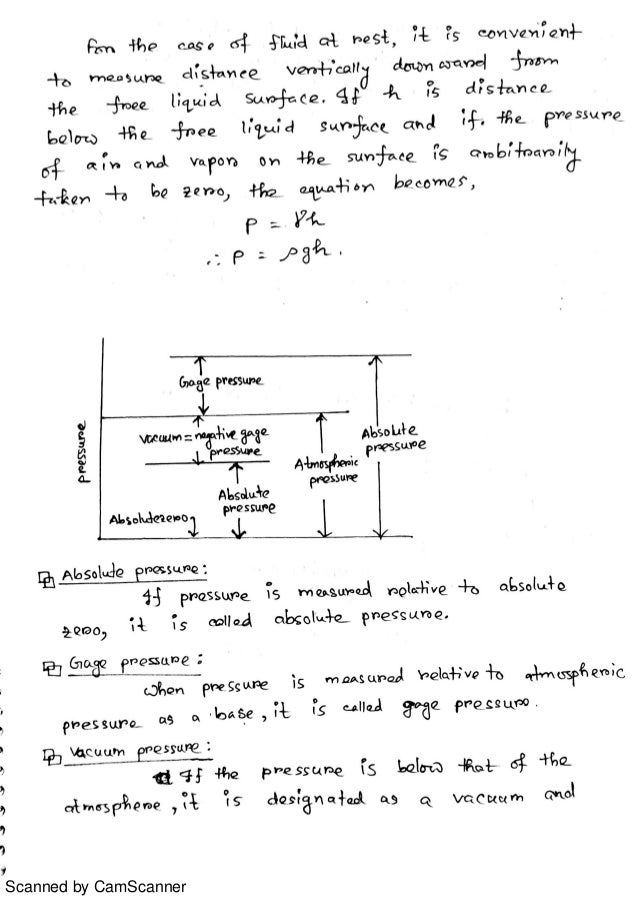 For the case of fluid at rest, it is convenient
to measure distance vertically downward from
the free liquid surface. If h is distance
below the free liquid surface and if. the pressure
of air and vapor on the surface is arbitrarily
taken to be zero, the equation becomes,
P = γh
∴ P = ρgh.
Gage pressure
vacuum = negative gage
pressure
Absolute
pressure
Atmospheric
pressure
Absolute
pressure
Absolute zero
pressure
Absolute pressure:
If pressure is measured relative to absolute
zero, it is called absolute pressure.
Gage pressure:
When pressure is measured relative to atmospheric
pressure as a base, it is called gage pressure.
Vacuum pressure:
If the pressure is below that of the
atmosphere, it is designated as a vacuum and
Scanned by CamScanner